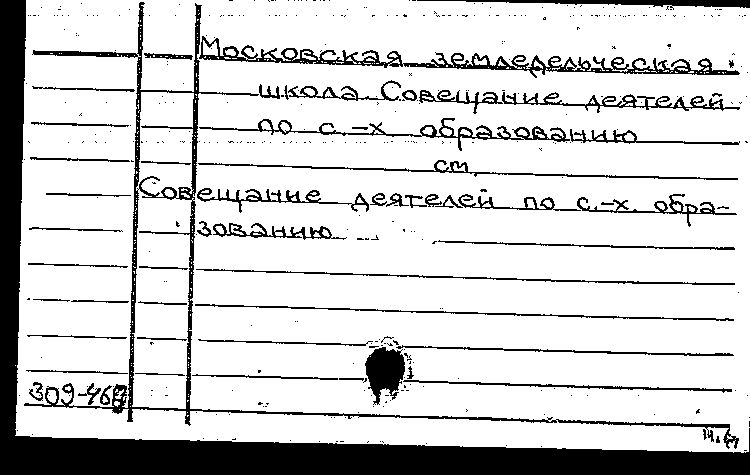 Московская земледельческая
школа. Совещание деятелей
по с.-х. образованию
см.
Совещание деятелей по с.-х. обра-
зованию